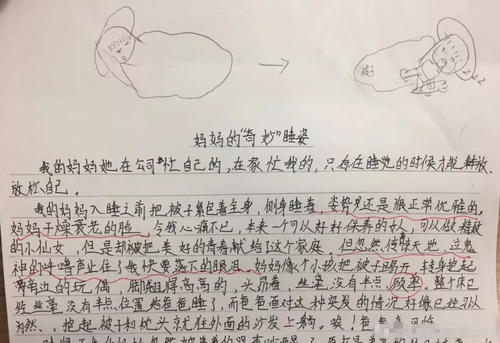 被子
妈妈的“奇妙”睡姿
我的妈妈她在公司忙自己的,在家忙我的,只有在睡觉的时候才能解放、
放松自己。
我的妈妈入睡之前把被子紧包着全身,侧身睡着,姿势还是很正常优雅的,
妈妈干燥衰老的脸,令我心痛不已,本来一个可以好好保养的女人,可以做精致
的小仙女,但是却被把美好的青春献给了这个家庭,但忽然传来天地,这鬼
神的呼噜声止住了我快要落下的眼泪。妈妈像个小孩把被子踢开,转身抱起
旁边的玩偶,脚翘得高高的,头昂着,丝毫没有半点顾虑。整个床已
经丝毫没有半点位置给爸爸睡了,而爸爸面对这种突发的情况好像已经习以
为然、,抱起被子和枕头就往外面的沙发上躺。唉!爸爸